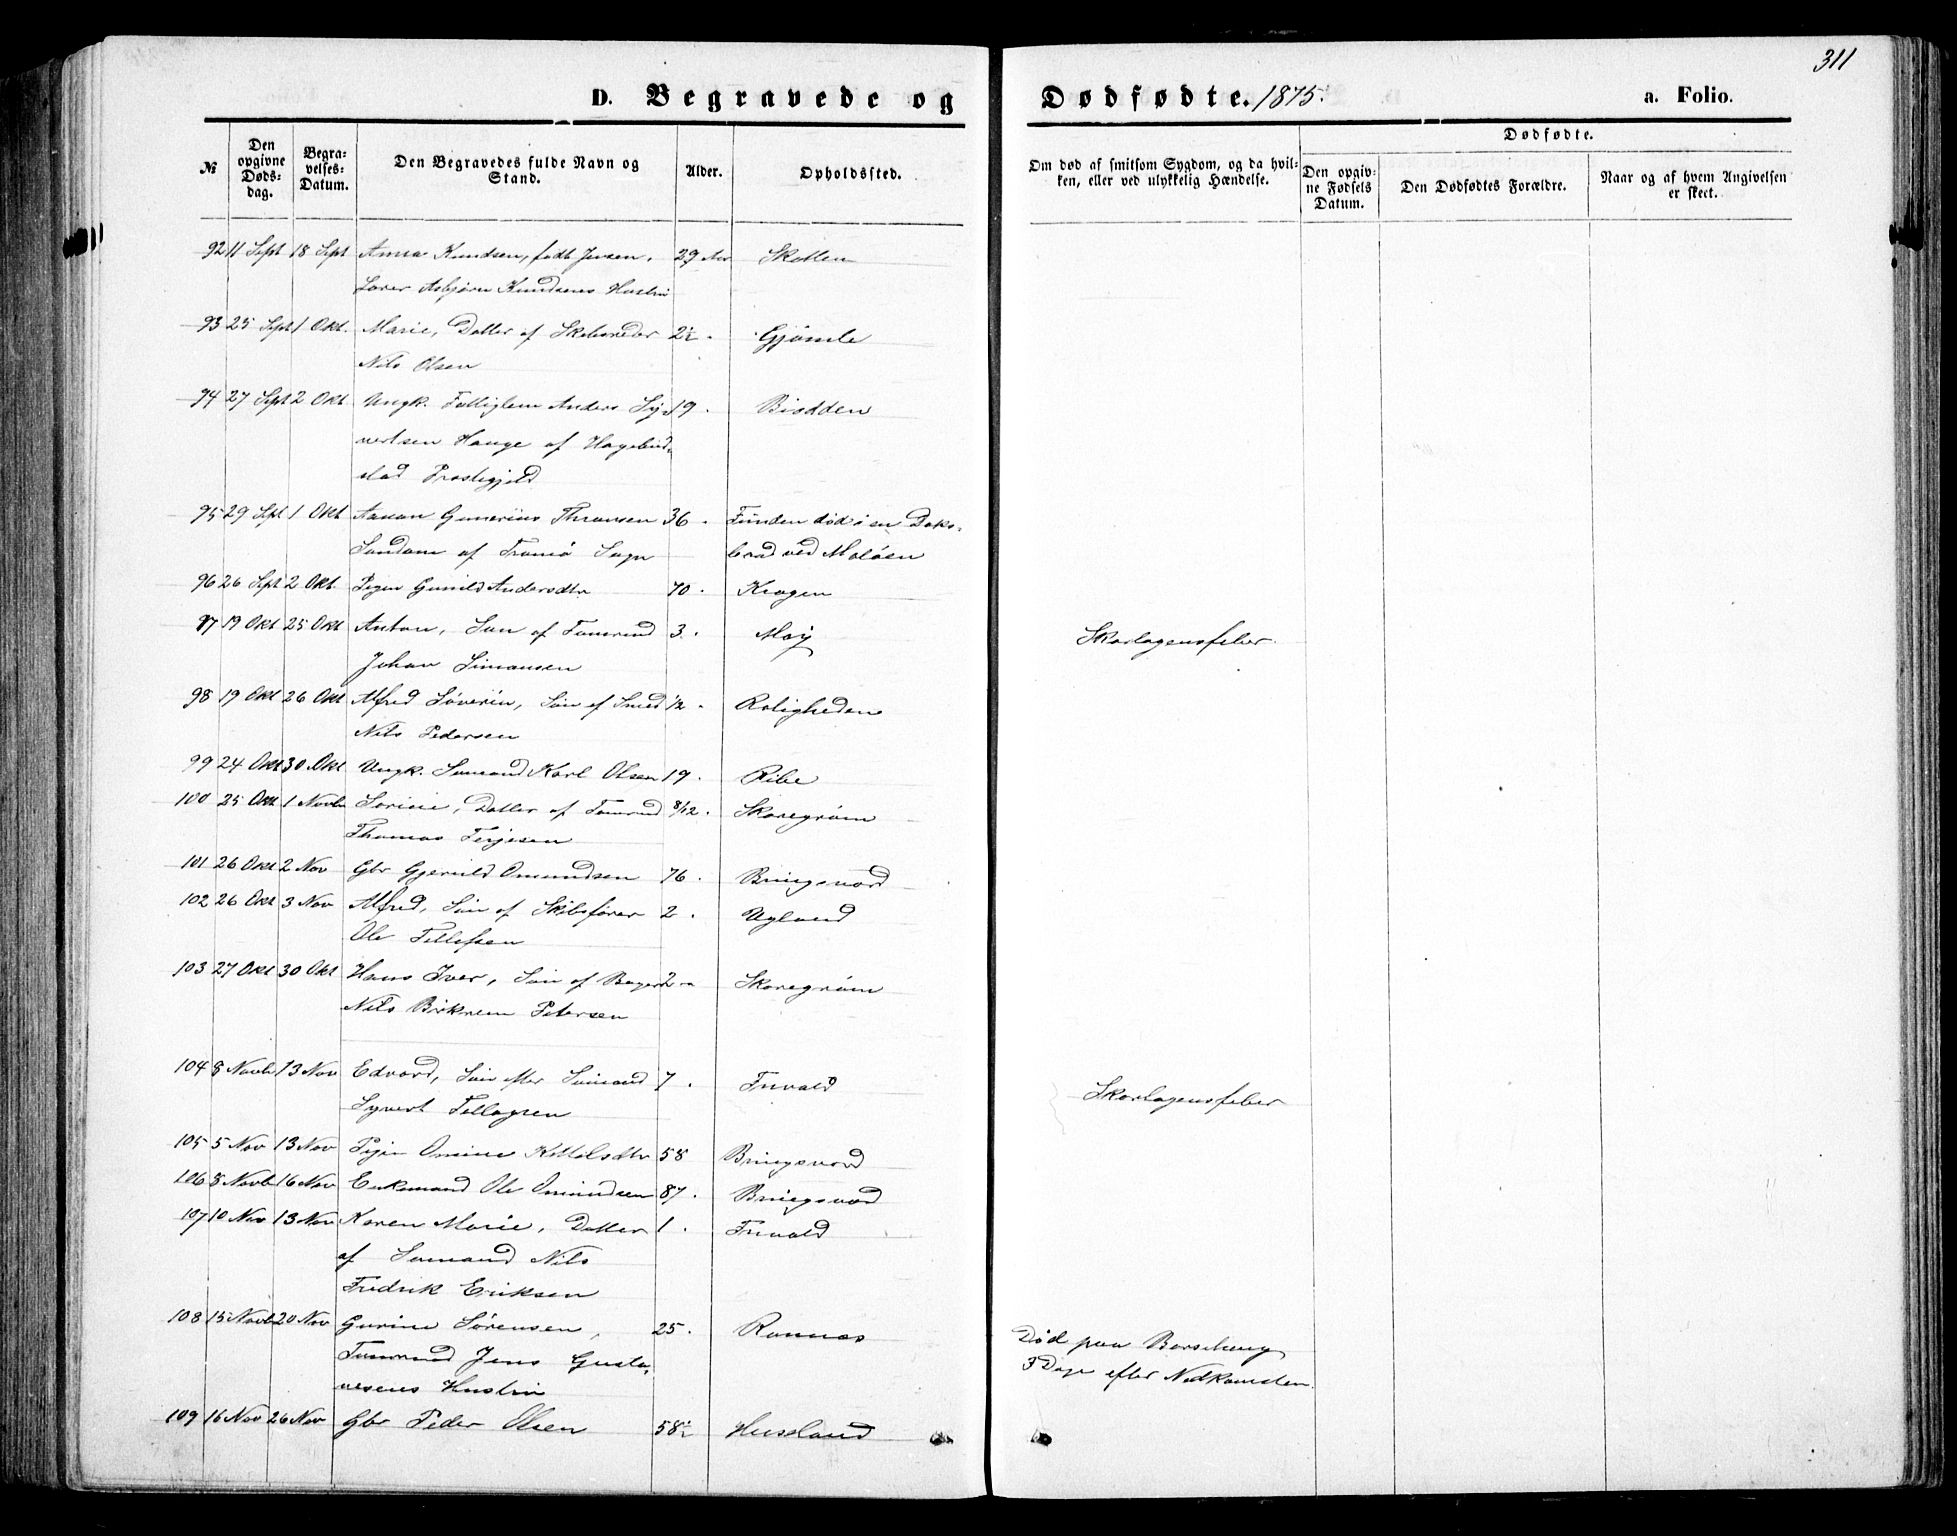 311
D. Begravede og Dødfødte. 1875.
a. Folio.
№
Den opgivne Døds-dag.
Begra-velses-Datum.
Den Begravedes fulde Navn og Stand.
Alder.
Opholdssted.
Om død af smitsom Sygdom, og da hvil-ken, eller ved ulykkelig Hændelse.
Dødfødte.
Den opgiv-ne Fødsels Datum.
Den Dødfødtes Forældre.
Naar og af hvem Angivelsen er skeet.
92 11 Sept 18 Sept Anna Knudsen, født Jensen, 29 Aar
Asbjørn Knudsens Hustru
93 25 Sept 1 Okt. Marie, Datter af Skibsreder 2½ . Gjømle
Nils Olsen
94 27 Sept 2 Okt Ungk. Fattiglem Anders Sy- 19 .
vertsen Hauge af Hægebod-
stad Præstegjeld
95 29 Sept 1 Okt Gunerius Thransen 36 . Funden død i en Doks-
af Tromø Sogn
96 26 Sept 2 Okt Pigen Gunild Andersdtr 70 . Kragen
97 19 Okt 25 Okt Anton, Søn af Tømmd 3 . Moy Skarlagensfeber
Johan Simonsen
98 19 Okt 26 Okt Alfred Søverin, Søn af Smed ½ . Roligheden
Nils Pedersen
99 24 Okt 30 Okt Ungk. Sømand Karl Olsen 19 . Ribe
100 25 Okt 1 Novb Sorine, Datter af Tømmd 8/12 . Skaregrøm
Thomas Terjesen
101 26 Okt 2 Nov Gbr Gjeruld Omundsen 76 . Bringsværd
102 26 Okt 3 Nov Alfred, Søn af Skibsfører 2 . Ugland
Ole Tellefsen
103 27 Okt 30 Okt Hans Iver, Søn af Bager 2 Skaregrøm
Nils Petersen
104 8 Novb 13 Nov Edvard, Søn efter Sømand 7 . Frivold Skarlagensfeber
Syvert Tellagsen
105 5 Nov 13 Nov Pigen Omine Kittilsdtr 58 Bringsværd
106 8 Novb 16 Nov Enkemand Ole Omundsen 87 . Bringsværd
107 10 Nov 13 Nov Karen Marie, Datter 1 . Frivold
af Sømand Nils
Fredrik Eriksen
108 15 Novb 20 Nov Gurine Sørensen, 25 . Rønnes Død paa Barselseng
Tømmermd Jens Gusta- 3 Dage efter Nedkomsten.
vesens Hustru
109 16 Nov 26 Nov Gbr Peder Olsen 58½ Hesseland